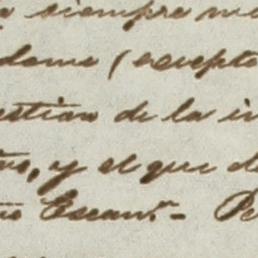 siempre
dome (excepto
estion de la in
, y el que de
Escanr. - Pe